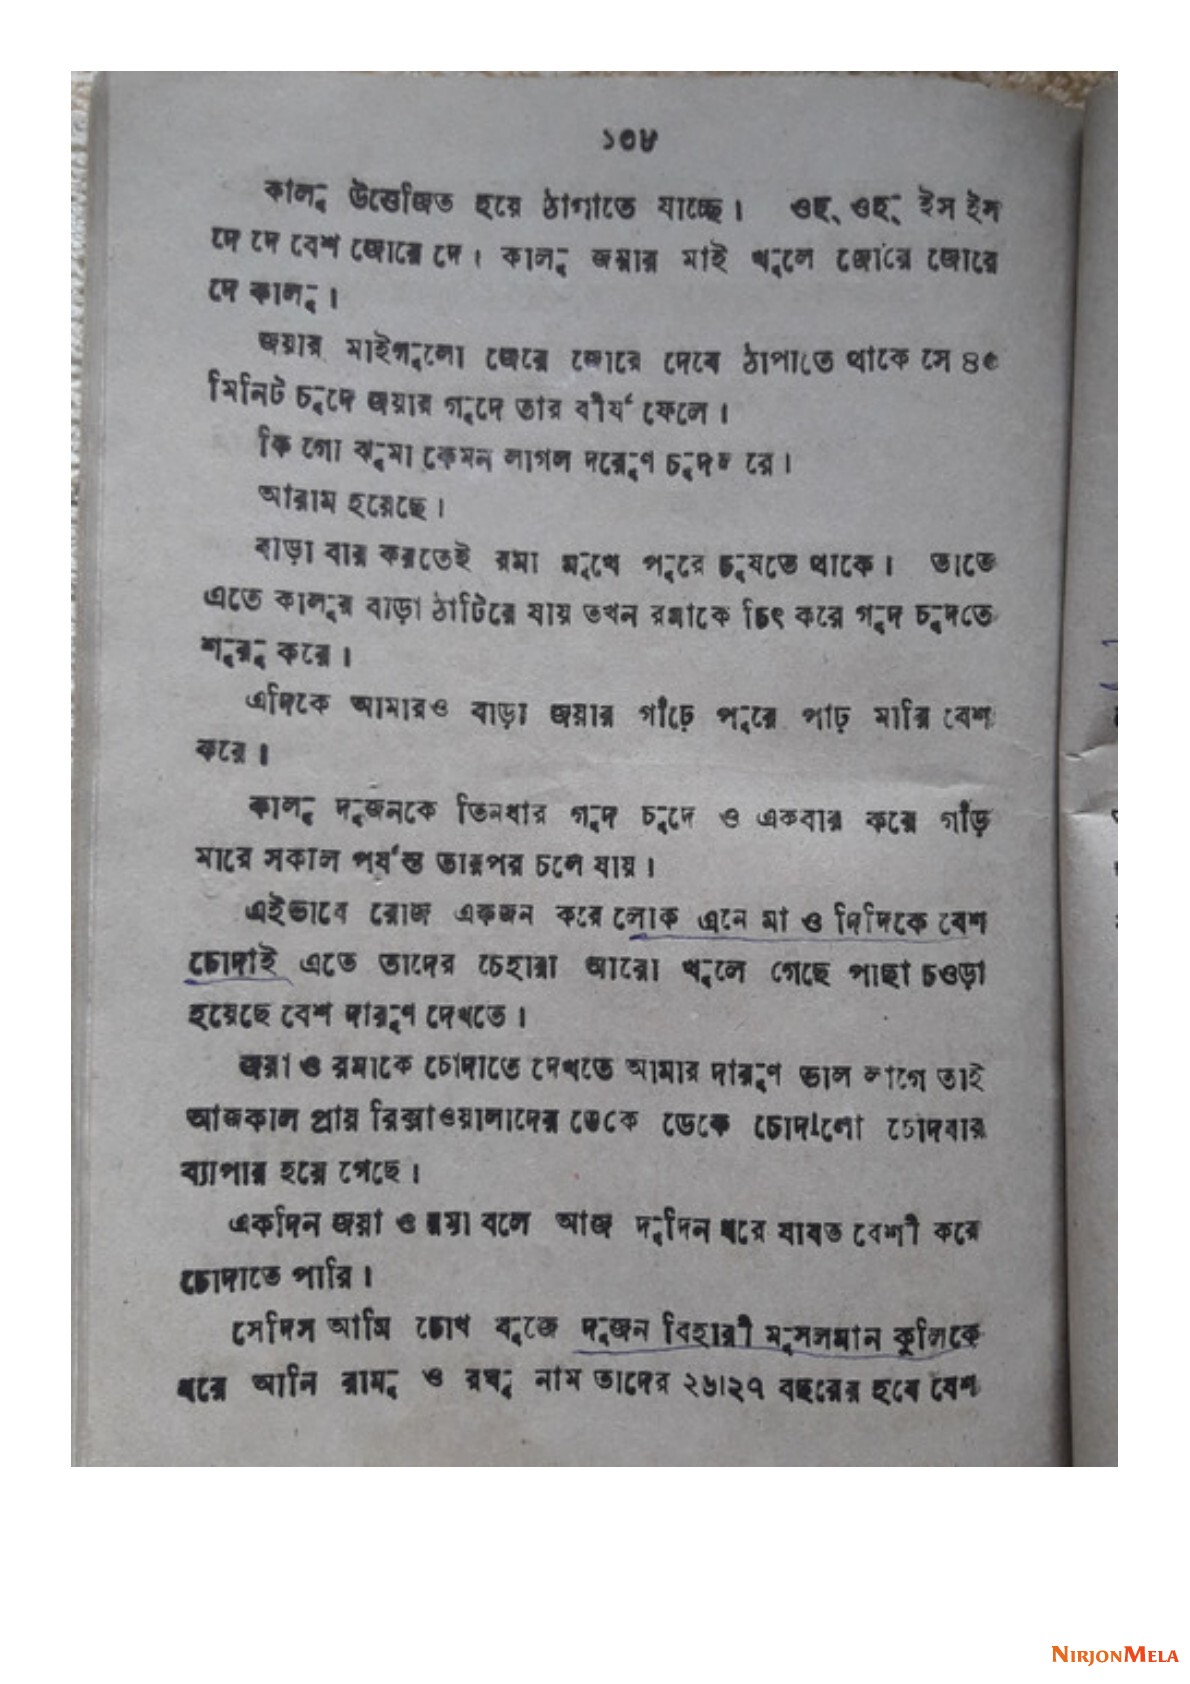 ১৩৮
কালু উত্তেজিত হয়ে ঠাপাতে যাচ্ছে। ওহ্ ওহ্ ইস ইস
দে দে বেশ জোরে দে। কালু জয়ার মাই খুলে জোরে জোরে
দে কালু।
জয়ার মাইগুলো জোরে জোরে দেবে ঠাপাতে থাকে সে ৪৫
মিনিট চুদে জয়ার গুদে তার বীর্য ফেলে।
কি গো ঝুমা কেমন লাগল রে।
আরাম হয়েছে।
বাড়া বার করতেই রমা মুখে পুরে চুষতে থাকে। তাতে
এতে কালুর বাড়া ঠাটিরে যায় তখন রমাকে চিৎ করে গুদ চুদতে
শুরু করে।
এদিকে আমারও বাড়া জয়ার গাঁড়ে পুরে মারি বেশ
করে।
কালু দুজনকে তিনধার গুদ চুদে ও একবার করে গাঁড়
মারে সকাল পর্যন্ত তারপর চলে যায়।
এইভাবে রোজ একজন করে লোক এনে মা ও দিদিকে বেশ
চোদাই এতে তাদের চেহারা আরো খুলে গেছে পাছা চওড়া
হয়েছে বেশ দারুণ দেখতে।
জয়া ও রমাকে চোদাতে দেখতে আমার দারুণ ভাল লাগে তাই
আজকাল প্রায় রিক্সাওয়ালাদের ডেকে ডেকে চোদানো চোদবার
ব্যাপার হয়ে গেছে।
একদিন জয়া ও রমা বলে আজ দুদিন ধরে যাবত বেশী করে
চোদাতে পারি।
সেদিস আমি চোখ বুজে দুজন বিহারী মুসলমান কুলিকে
ধরে আনি রামু ও রঘু নাম তাদের ২৬।২৭ বছরের হবে বেশ
NIRJONMELA